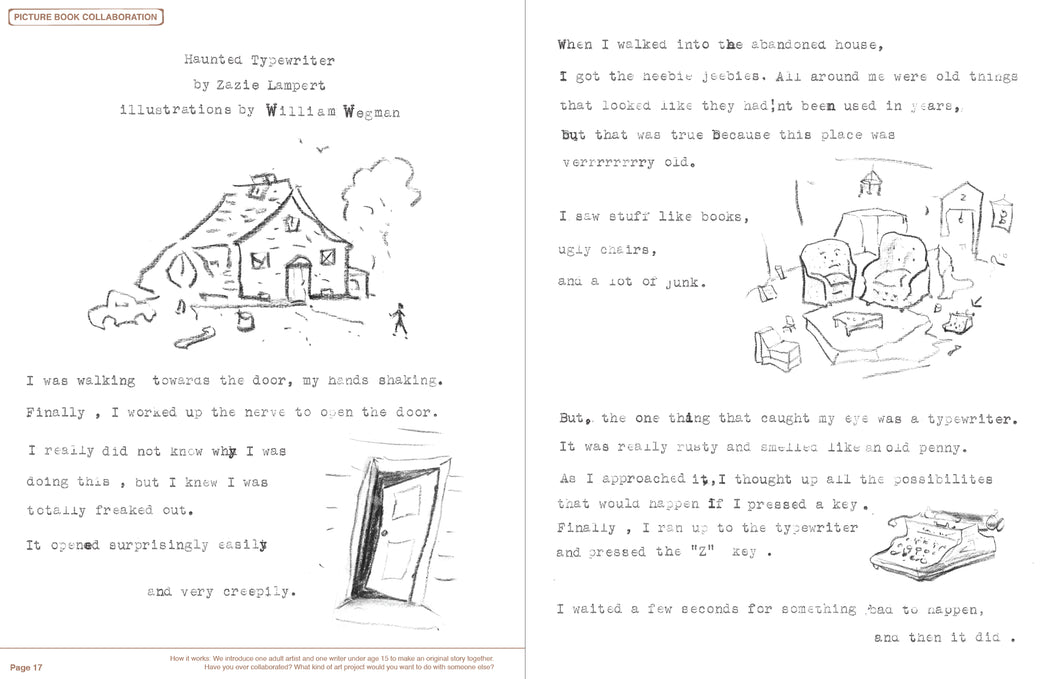 PICTURE BOOK COLLABORATION
Haunted Typewriter
by Zazie Lampert
illustrations by William Wegman
I was walking towards the door, my hands shaking.
Finally , I worked up the nerve to open the door.
I really did not know why I was
doing this , but I knew I was
totally freaked out.
It opened surprisingly easily
and very creepily.
Page 17
How it works: We introduce one adult artist and one writer under age 15 to make an original story together.
Have you ever collaborated? What kind of art project would you want to do with someone else?
When I walked into the abandoned house,
I got the heebie jeebies. All around me were old things
that looked like they had'nt been used in years,
but that was true because this place was
verrrrrrry old.
I saw stuff like books,
ugly chairs,
and a lot of junk.
2
But, the one thing that caught my eye was a typewriter.
It was really rusty and smelled like an old penny.
As I approached it,I thought up all the possibilites
that would happen if I pressed a key .
Finally , I ran up to the typewriter
and pressed the "Z" key .
I waited a few seconds for something bad to happen,
and then it did .